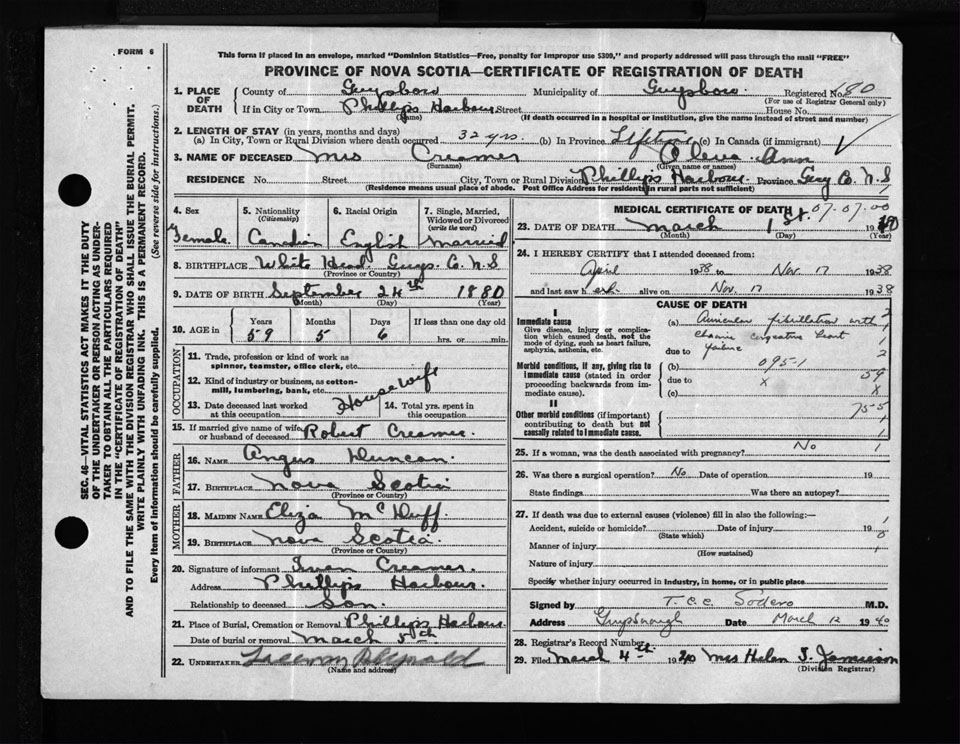 FORM 6
This form if placed in an envelope, marked "Dominion Statistics—Free, penalty for improper use $300," and properly addressed will pass through the mail "FREE"
PROVINCE OF NOVA SCOTIA—CERTIFICATE OF REGISTRATION OF DEATH
SEC. 46—VITAL STATISTICS ACT MAKES IT THE DUTY
OF THE UNDERTAKER OR PERSON ACTING AS UNDER-
TAKER TO OBTAIN ALL THE PARTICULARS REQUIRED
IN THE "CERTIFICATE OF REGISTRATION OF DEATH"
AND TO FILE THE SAME WITH THE DIVISION REGISTRAR WHO SHALL ISSUE THE BURIAL PERMIT.
WRITE PLAINLY WITH UNFADING INK. THIS IS A PERMANENT RECORD.
Every item of information should be carefully supplied. (See reverse side for instructions.)
1. PLACE OF DEATH County of Guysboro Municipality of Guysboro. Registered No. 80
(For use of Registrar General only)
If in City or Town Phillips Harbour Street House No.
(Name) (If death occurred in a hospital or institution, give the name instead of street and number)
2. LENGTH OF STAY (in years, months and days)
(a) In City, Town or Rural Division where death occurred 32 yrs. (b) In Province Lifetime (c) In Canada (if immigrant)
3. NAME OF DECEASED Mrs Creamer Ann
(Surname) (Given name or names)
RESIDENCE No. Street City, Town or Rural Division Phillips Harbour Province Guy Co. N.S
(Residence means usual place of abode. Post Office Address for residents in rural parts not sufficient)
4. Sex Female
5. Nationality (Citizenship) Canadian
6. Racial Origin English
7. Single, Married, Widowed or Divorced (write the word) Married
8. BIRTHPLACE White Head Guys. Co. N.S
(Province or Country)
9. DATE OF BIRTH September 24th 1880
(Month) (Day) (Year)
10. AGE in Years 59 Months 5 Days 6 If less than one day old hrs. or min.
OCCUPATION
11. Trade, profession or kind of work as spinner, teamster, office clerk, etc.
12. Kind of industry or business, as cotton-mill, lumbering, bank, etc.
Housewife
13. Date deceased last worked at this occupation
14. Total yrs. spent in this occupation
15. If married give name of wife or husband of deceased Robert Creamer.
FATHER
16. NAME Angus Duncan.
17. BIRTHPLACE Nova Scotia
(Province or Country)
MOTHER
18. MAIDEN NAME Eliza McDuff
19. BIRTHPLACE Nova Scotia.
(Province or Country)
20. Signature of informant Creamer.
Address Phillips Harbour.
Relationship to deceased Son.
21. Place of Burial, Cremation or Removal Phillips Harbour
Date of burial or removal March 5th
22. UNDERTAKER
(Name and address)
MEDICAL CERTIFICATE OF DEATH 07.07.00
23. DATE OF DEATH March 1st. 1940
(Month) (Day) (Year)
24. I HEREBY CERTIFY that I attended deceased from:
April 1938 to Nov. 17 1938
and last saw her alive on Nov. 17 1938
CAUSE OF DEATH
I
Immediate cause
Give disease, injury or complication which caused death, not the mode of dying, such as heart failure, asphyxia, asthenia, etc.
(a) Auricular fibrillation with
chronic congestive heart
due to failure
Morbid conditions, if any, giving rise to immediate cause (stated in order proceeding backwards from immediate cause).
(b) 095-1
due to x
(c)
2
1
2
59
x
75-5
1
II
Other morbid conditions (if important) contributing to death but not causally related to immediate cause.
25. If a woman, was the death associated with pregnancy? No 1
26. Was there a surgical operation? No Date of operation 19
State findings Was there an autopsy?
27. If death was due to external causes (violence) fill in also the following:—
Accident, suicide or homicide? Date of injury 19
(State which)
Manner of injury
(How sustained)
Nature of injury
Specify whether injury occurred in industry, in home, or in public place
Signed by T. C. C. Sodero M.D.
Address Guysborough Date March 12 1940
28. Registrar's Record Number
29. Filed March 4th 1940 Mrs Helen J. Jamieson
(Division Registrar)